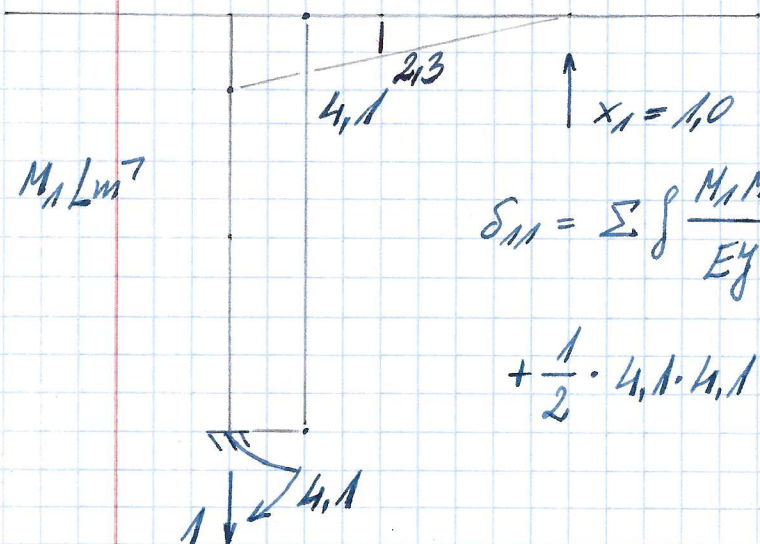 2,3
4,1
x₁ = 1,0
M₁ [m]
δ₁₁ = Σ ∫ M₁M / EJ
+ 1/2 · 4,1 · 4,1
4,1
1